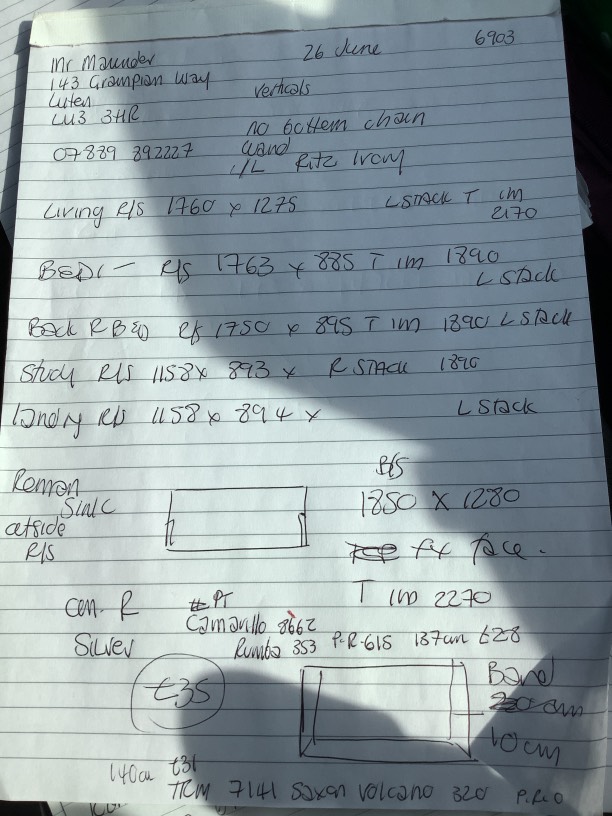 Mr Maunder 26 June 6903
143 Grampian Way
Luten verticals
LU3 3HR
no bottem chain
07889 892227 wand
I/L Ritz Ivory
Living R/S 1760 x 1275 L STACK T im
2170
BED1 - R/S 1763 x 885 T im 1890
L Stack
Back R BED R/S 1750 x 895 T im 1890 L Stack
Study R/S 1158 x 893 x R STACK 1890
landry R/S 1158 x 894 x L Stack
B/S
Sink 1850 x 1280
outside
R/S fix face.
T im 2270
Con. R PT
Camarillo 8662
Silver Rumba 353 P.R. 615 137cm £28
£35 Band
cm
10cm
140cm £31
TRM 7141 Saxon Volcano 320 P.R.O